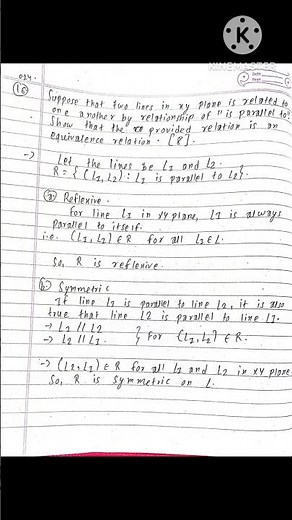 K
KINEMASTER
024.
(15) Suppose that two lines in xy plane is related to
one another by relationship of "is parallel to".
Show that the provided relation is an
equivalence relation. [R].
→ Let the lines be L1 and L2.
R = { (L1, L2) : L1 is parallel to L2}.
(a) Reflexive.
for line L1 in xy plane, L1 is always
parallel to itself.
i.e. (L1, L1) ∈ R for all L1 ∈ L.
So, R is reflexive.
(b) Symmetric
If line L1 is parallel to line L2, it is also
true that line L2 is parallel to line L1.
→ L1 // L2
→ L2 // L1. } for (L1, L2) ∈ R.
→ (L2, L1) ∈ R for all L1 and L2 in xy plane.
So, R is symmetric on L.